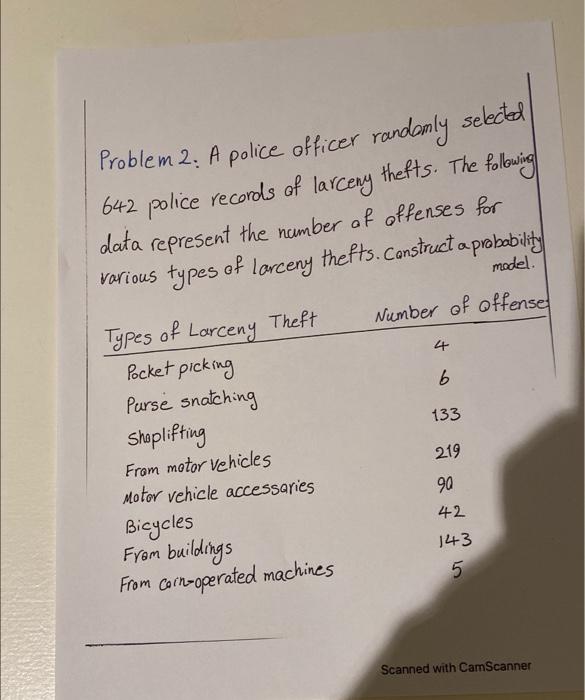 Problem 2: A police officer randomly selected
642 police records of larceny thefts. The following
data represent the number of offenses for
various types of larceny thefts. Construct a probability
model.
Types of Larceny Theft Number of offense
Pocket picking 4
Purse snatching 6
Shoplifting 133
From motor vehicles 219
Motor vehicle accessories 90
Bicycles 42
From buildings 143
From coin-operated machines 5
Scanned with CamScanner